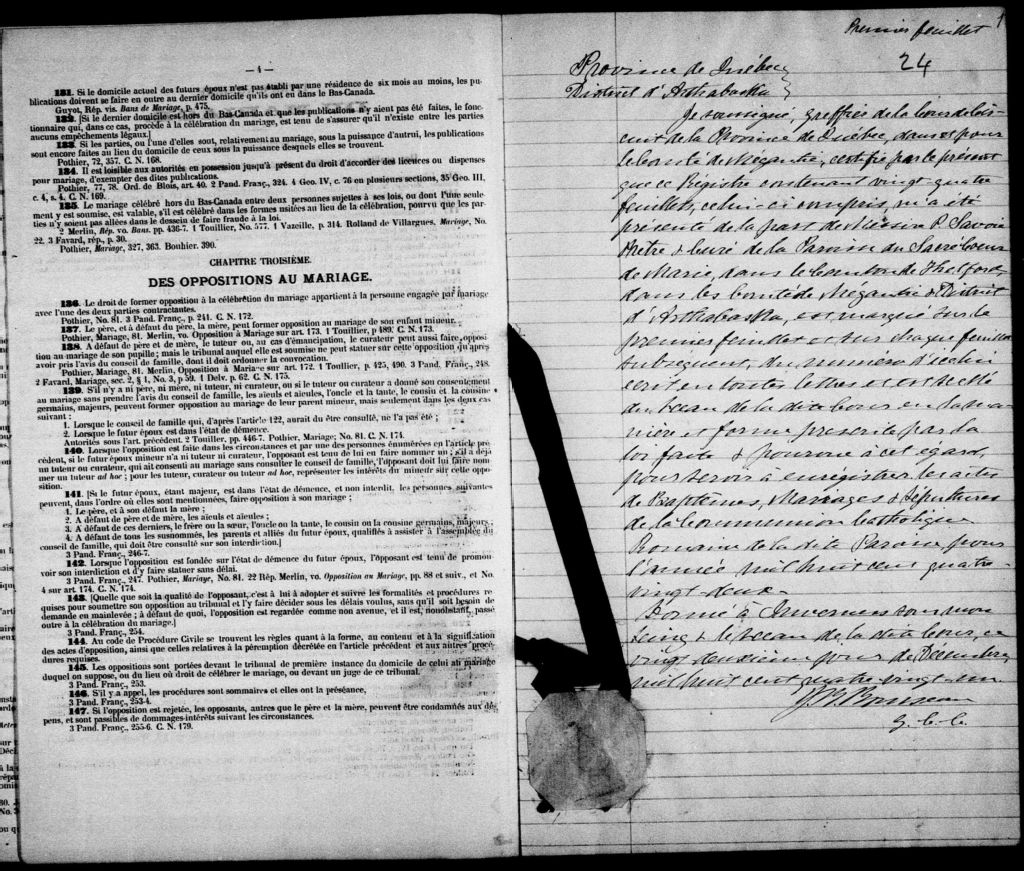 — 4 —
131. Si le domicile actuel des futurs époux n'est pas établi par une résidence de six mois au moins, les pu-
blications doivent se faire en outre au dernier domicile qu'ils ont eu dans le Bas-Canada.
Guyot, Rép. vis. Bans de Mariage, p. 475.
132. [Si le dernier domicile est hors du Bas-Canada et que les publications n'y aient pas été faites, le fonc-
tionnaire qui, dans ce cas, procède à la célébration du mariage, est tenu de s'assurer qu'il n'existe entre les parties
aucuns empêchements légaux.]
133. Si les parties, ou l'une d'elles sont, relativement au mariage, sous la puissance d'autrui, les publications
sont encore faites au lieu du domicile de ceux sous la puissance desquels elles se trouvent.
Pothier, 72, 357. C. N. 168.
134. Il est loisible aux autorités en possession jusqu'à présent du droit d'accorder des licences ou dispenses
pour mariage, d'exempter des dites publications.
Pothier, 77, 78. Ord. de Blois, art. 40. 2 Pand. Franç., 324. 4 Geo. IV, c. 76 en plusieurs sections, 35 Geo. III,
c. 4, s. 4. C. N. 169.
135. Le mariage célébré hors du Bas-Canada entre deux personnes sujettes à ses lois, ou dont l'une seule-
ment y est soumise, est valable, s'il est célébré dans les formes usitées au lieu de la célébration, pourvu que les par-
ties n'y soient pas allées dans le dessein de faire fraude à la loi.
2 Merlin, Rép. vo. Bans. pp. 436-7. 1 Touillier, No. 577. 1 Vazeille, p. 314. Rolland de Villargues. Mariage, No.
22. 3 Favard, rép., p. 30.
Pothier, Mariage, 327, 363. Bouhier. 390.
CHAPITRE TROISIÈME.
DES OPPOSITIONS AU MARIAGE.
136. Le droit de former opposition à la célébration du mariage appartient à la personne engagée par mariage
avec l'une des deux parties contractantes.
Pothier, No. 81. 3 Pand. Franç., p. 241. C. N. 172.
137. Le père, et à défaut du père, la mère, peut former opposition au mariage de son enfant mineur.
Pothier, Mariage, 81. Merlin, vo. Opposition à Mariage sur art. 173. 1 Touillier, p 489. C. N. 173.
138. A défaut de père et de mère, le tuteur ou, au cas d'émancipation, le curateur peut aussi faire opposi-
tion au mariage de son pupille; mais le tribunal auquel elle est soumise ne peut statuer sur cette opposition qu'après
avoir pris l'avis du conseil de famille, dont il doit ordonner la convocation.
Pothier, Mariage, 81. Merlin, Opposition à Mariage sur art. 172. 1 Toullier, p. 425, 490. 3 Pand. Franç., 248.
2 Favard, Mariage, sec. 2, § 1, No. 3, p 59. 1 Delv. p. 62. C. N. 175.
139. S'il n'y a ni père, ni mère, ni tuteur, ni curateur, ou si le tuteur ou curateur a donné son consentement
au mariage sans prendre l'avis du conseil de famille, les aïeuls et aïeules, l'oncle et la tante, le cousin et la cousine
germains, majeurs, peuvent former opposition au mariage de leur parent mineur, mais seulement dans les deux cas
suivant :
1. Lorsque le conseil de famille qui, d'après l'article 122, aurait du être consulté, ne l'a pas été ;
2. Lorsque le futur époux est dans l'état de démence.
Autorités sous l'art. précédent. 2 Touiller, pp. 446-7. Pothier, Mariage; No. 81. C. N. 174.
140. Lorsque l'opposition est faite dans les circonstances et par une des personnes énumérées en l'article pré-
cédent, si le futur époux mineur n'a ni tuteur ni curateur, l'opposant est tenu de lui en faire nommer un ; s'il a déjà
un tuteur ou curateur, qui ait consenti au mariage sans consulter le conseil de famille, l'opposant doit lui faire nom-
mer un tuteur ad hoc ; pour les tuteur, curateur ou tuteur ad hoc, représenter les intérêts du mineur sur cette oppo-
sition.
141. [Si le futur époux, étant majeur, est dans l'état de démence, et non interdit, les personnes suivantes
peuvent, dans l'ordre où elles sont mentionnées, faire opposition à son mariage ;
1. Le père, et à son défaut la mère ;
2. A défaut de père et de mère, les aïeuls et aïeules ;
3. A défaut de ces derniers, le frère ou la sœur, l'oncle ou la tante, le cousin ou la consine germains, majeurs ;
4. A défaut de tous les susnommés, les parents et alliés du futur époux, qualifiés à assister à l'assemblée du
conseil de famille, qui doit être consulté sur son interdiction.]
3 Pand. Franç., 246-7.
142. Lorsque l'opposition est fondée sur l'état de démence du futur époux, l'opposant est tenu de promou-
voir son interdiction et d'y faire statuer sans délai.
3 Pand. Franç., 247. Pothier, Mariage, No. 81. 22 Rép. Merlin, vo. Opposition au Mariage, pp. 88 et suiv., et No.
4 sur art. 174. C. N. 174.
143. [Quelle que soit la qualité de l'opposant, c'est à lui à adopter et suivre les formalités et procédures re-
quises pour soumettre son opposition au tribunal et l'y faire décider sous les délais voulus, sans qu'il soit besoin de
demande en mainlevée ; à défaut de quoi, l'opposition est regardée comme non avenue, et il est, nonobstant, passé
outre à la célébration du mariage.]
3 Pand. Franç., 254.
144. Au code de Procédure Civile se trouvent les règles quant à la forme, au contenu et à la signification
des actes d'opposition, ainsi que celles relatives à la péremption décrétée en l'article précédent et aux autres procé-
dures requises.
145. Les oppositions sont portées devant le tribunal de première instance du domicile de celui au mariage
duquel on oppose, ou du lieu où doit célébrer le mariage, ou devant un juge de ce tribunal.
3 Pand. Franç., 253.
146. S'il y a appel, les procédures sont sommaires et elles ont la préséance,
3 Pand. Franç., 253-4.
147. Si l'opposition est rejetée, les opposants, autres que le père et la mère, peuvent être condamnés aux dé-
pens, et sont passibles de dommages-intérêts suivant les circonstances.
3 Pand. Franç., 255-6. C. N. 179.
1
Premier feuillet
24
Province de Québec
District d'Arthabaska
Je soussigné, greffier de la Cour de Cir-
cuit de la Province de Québec, dans & pour
le Comté de Mégantic, certifie par le présent
que ce Régistre contenant vingt quatre
feuillets, celui-ci compris, m'a été
présenté de la part de Messire P. Savoie
Prêtre & Curé de la Paroisse du Sacré Coeur
de Marie, dans le Canton de Thetford
dans les Comté de Mégantic & District
d'Arthabaska, est marqué sur le
premier feuillet et sur chaque feuillet
subséquent, du numéro d'icelui
écrit en toutes lettres et est scellé
du Sceau de la dite Cour en la ma-
nière et forme prescrite par la
loi faite & pourvue à cet égard,
pour servir à enrégistrer les actes
de Baptêmes, Mariages & Sépultures
de la Communion Catholique
Romaine de la dite Paroisse pour
l'année mil huit cent quatre-
vingt-deux.
Donné à Inverness sous mon
Seing & le Sceau de la dite Cour, ce
vingt deuxième jour de Décembre
mil huit cent quatre vingt un
G. C. C.